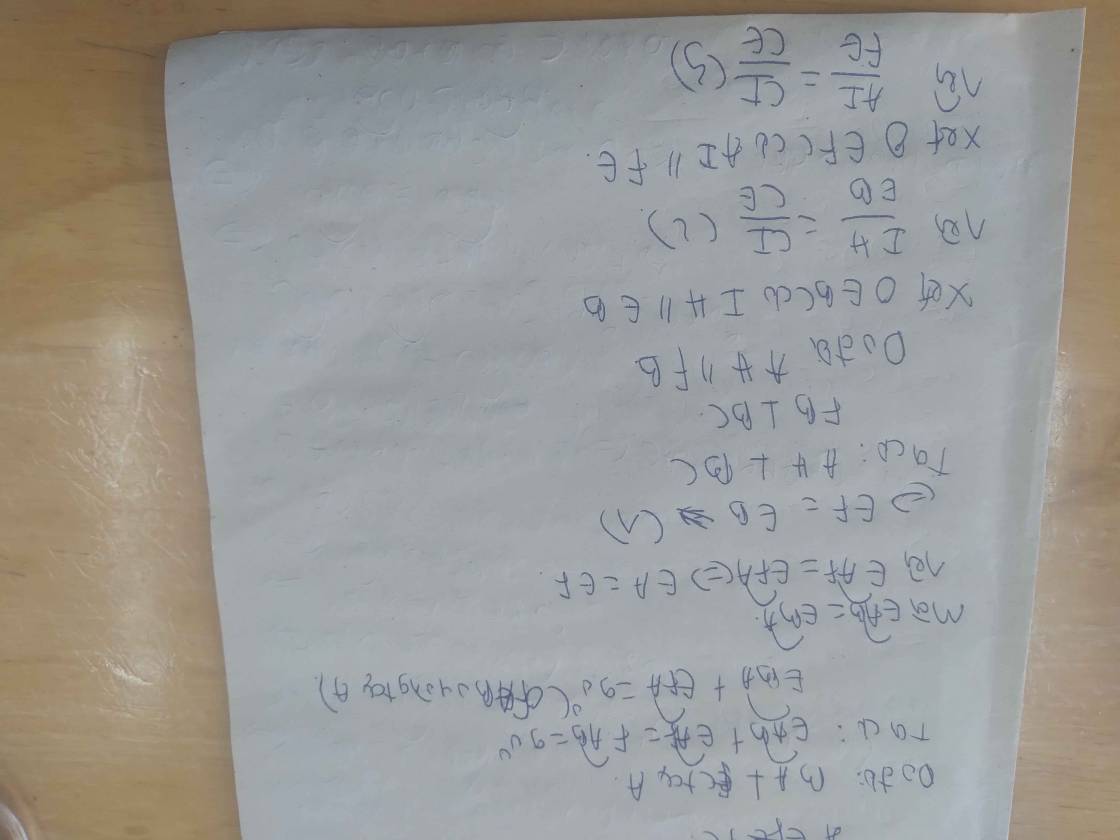 Do đó: BA ⊥ FC tại A
Ta có: EAB + EAF = FAB = 90°
EBA + EFA = 90° ( vuông tại A)
Mà EAB = EBA
nên EAF = EFA (=) EA = EF
(=) EF = EB (1)
Ta có: AH ⊥ BC
FB ⊥ BC
Do đó AH // FB
Xét Δ EBC có IH // EB
nên IH/EB = CI/CE (2)
Xét Δ EFC có AI // FE
nên AI/FE = CI/CE (3)